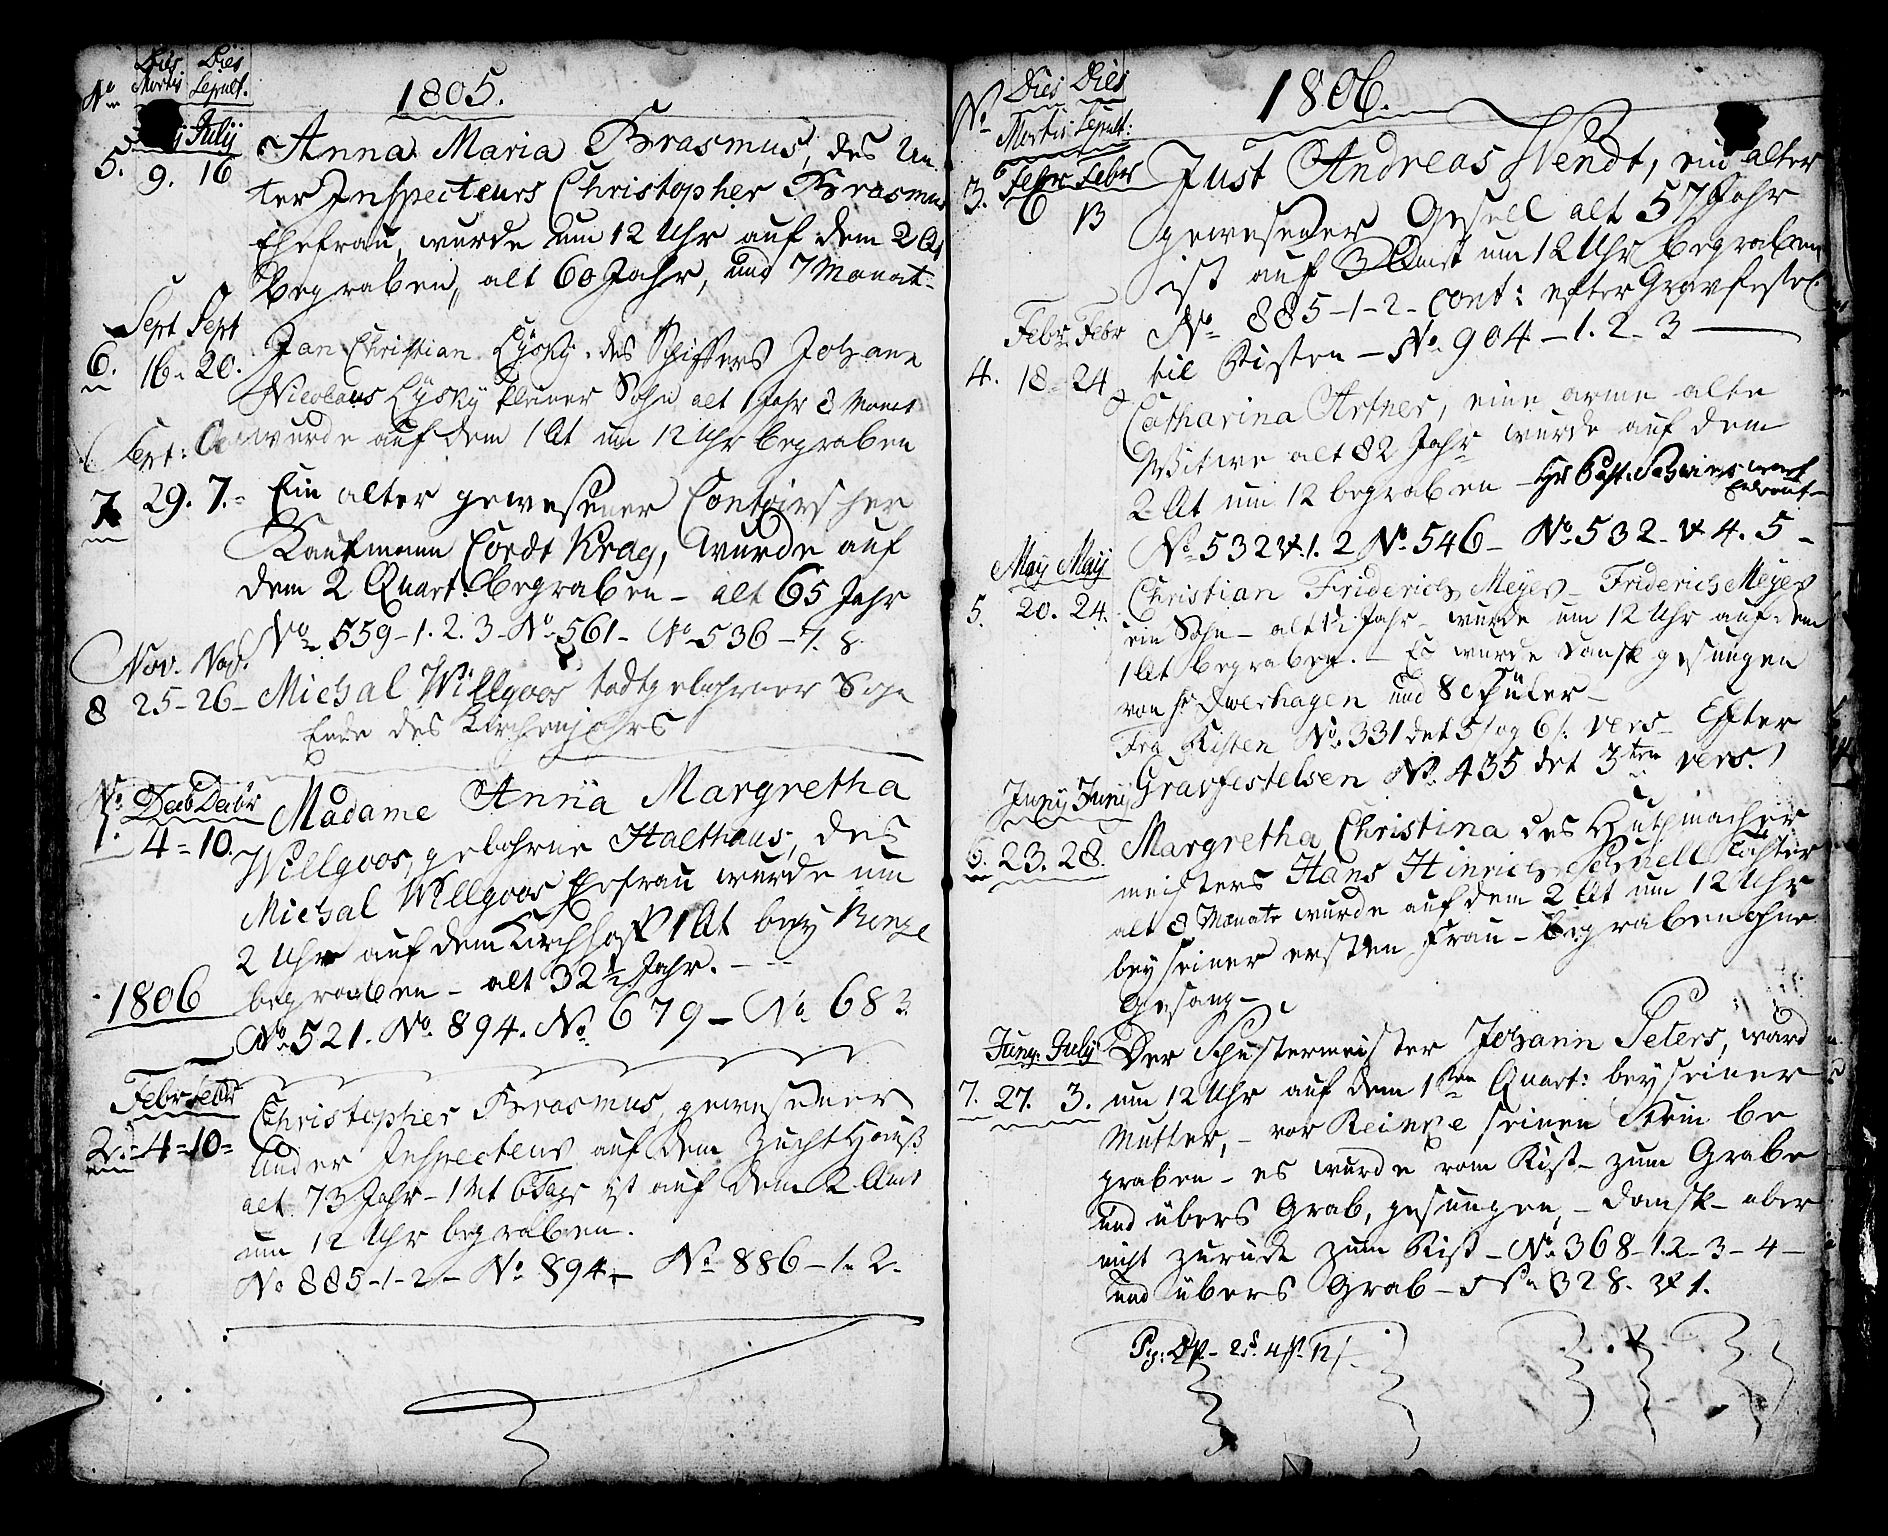 No Dies Mortis Dies Sepult. 1805.
July
5. 9. 16 Anna Maria Erasmus, des Un
ter Inspecteurs Christopher Erasmus
Ehefrau, wurde um 12 Uhr auf dem 2 Qt
begraben, alt 60 Jahr, und 7 Monat-
Sept Sept
6. 16. 20. Jan Christian Lysky, des Schiffers Johann
Nicolaus Lysky kleiner Sohn alt 1 Jahr 8 Monat
Sept: wurde auf dem 1 Qt um 12 Uhr begraben
7 29. 7. Ein alter gewesener Contoirscher
Kaufmann Cordt Krag, wurde auf
dem 2 Quart. begraben - alt 65 Jahr
No 559-1.2.3-No 561- No 536-7.8
Nov. Nov.
8 25-26- Michal Willgoos todtgebohrner Sohn
Ende des Kirchenjahrs
No Decb Decbr
1. 4=10. Madame Anna Margretha
Willgoos, gebohrne Halthaus, des
Michal Willgoos Ehefrau wurde um
2 Uhr auf dem Kirchhoff 1 Qt bey
1806 begraben - alt 32½ Jahr.
No 521. No 894. No 679 - No 683.
Febr Febr
2. 4=10= Christopher Erasmus, gewesener
Under Inspecteur auf dem Zucht Hauß
alt 73 Jahr - 1 Mt 6 Tage ist auf dem 2 Quart
um 12 Uhr begraben.
No 885-1-2- No 894- No 886-1-2-
No Dies Mortis Dies Sepult: 1806.
Febr Febr
3. 6 13 Just Andreas Wendt, ein alter
gewesener Gesell alt 57 Jahr
ist auf 3 Quart um 12 Uhr begraben
No 885-1-2- cont: efter Gravfestel
Febr Febr
4. 18=24 til Kisten - No 904-1.2-3
Catharina Artner, eine arme alte
Witwe alt 82 Jahr wurde auf dem
2 Qt um 12 begraben - Hr
No 532 v.1.2 No 546- No 532- v 4.5-
May May
5. 20. 24. Christian Friderich Meyer - Friderich Meyer
ein Sohn - alt 1½ Jahr - wurde um 12 Uhr auf dem
1 Qt begraben. - Es wurde Dansk gesungen
von Hr Dwerhagen und 8 Schüler-
Fra Kisten No 331 det 5/ og 6/: vers- Efter
Gravfestelsen No 435 det 3ten vers.
Juny Juny
6. 23. 28. Margretha Christina des Huthmacher
meisters Hans Hinrich Schnell Töchter
alt 8 Monate wurde auf dem 2 Qt um 12 Uhr
bey seiner ersten Frau - begraben ohne
Gesang-
Juny: July
7. 27. 3. Der Schustermeister Johann Peters, ward
um 12 Uhr auf dem 1ten Quart: bey seiner
Mutter, - vor Reinke seinen Stein be
graben - es wurde vom Kist - zum Grabe
und übers Grab, gesungen, - Dansk - aber
nicht zurück zum Kist - No 368-1.2-3-4-
und übers Grab - No 328. v 1.